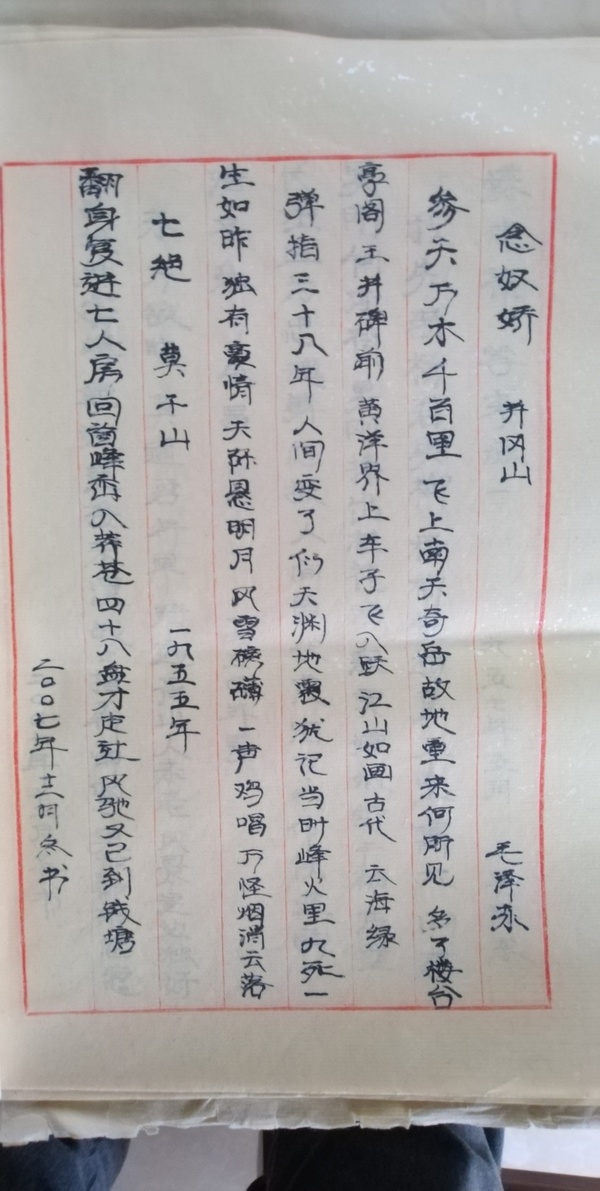 念奴娇 井冈山 毛泽东
参天万木千百里 飞上南天奇岳故地重来何所见 多了楼台
亭阁 五井碑前 黄洋界上 车子飞如跃 江山如画 古代 云海绿
弹指三十八年 人间变了 似天渊地覆 犹记当时烽火里 九死一
生如昨 独有豪情 天际悬明月 风雪磅礴 一声鸡唱 万怪烟消云落
七绝 莫干山 一九五五年
翻身复进七人房 回首峰峦入莽苍 四十八盘才走过 风驰又已到钱塘
二〇〇七年十二月冬书